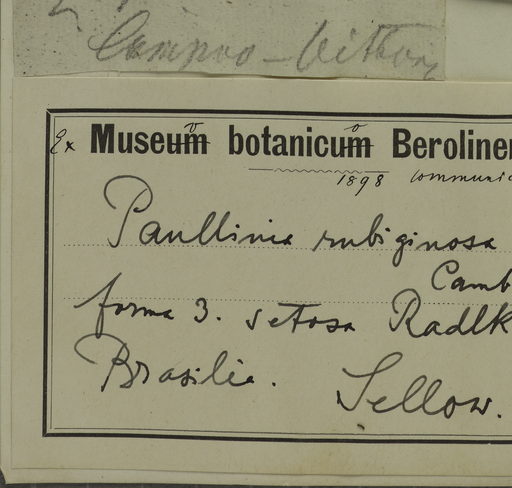 Campos – Victori
Ex Museo botanico Beroliner
1898 communic
Paullinia rubiginosa
Camb
forma 3. setosa Radlk
Brasilia. Sellow.